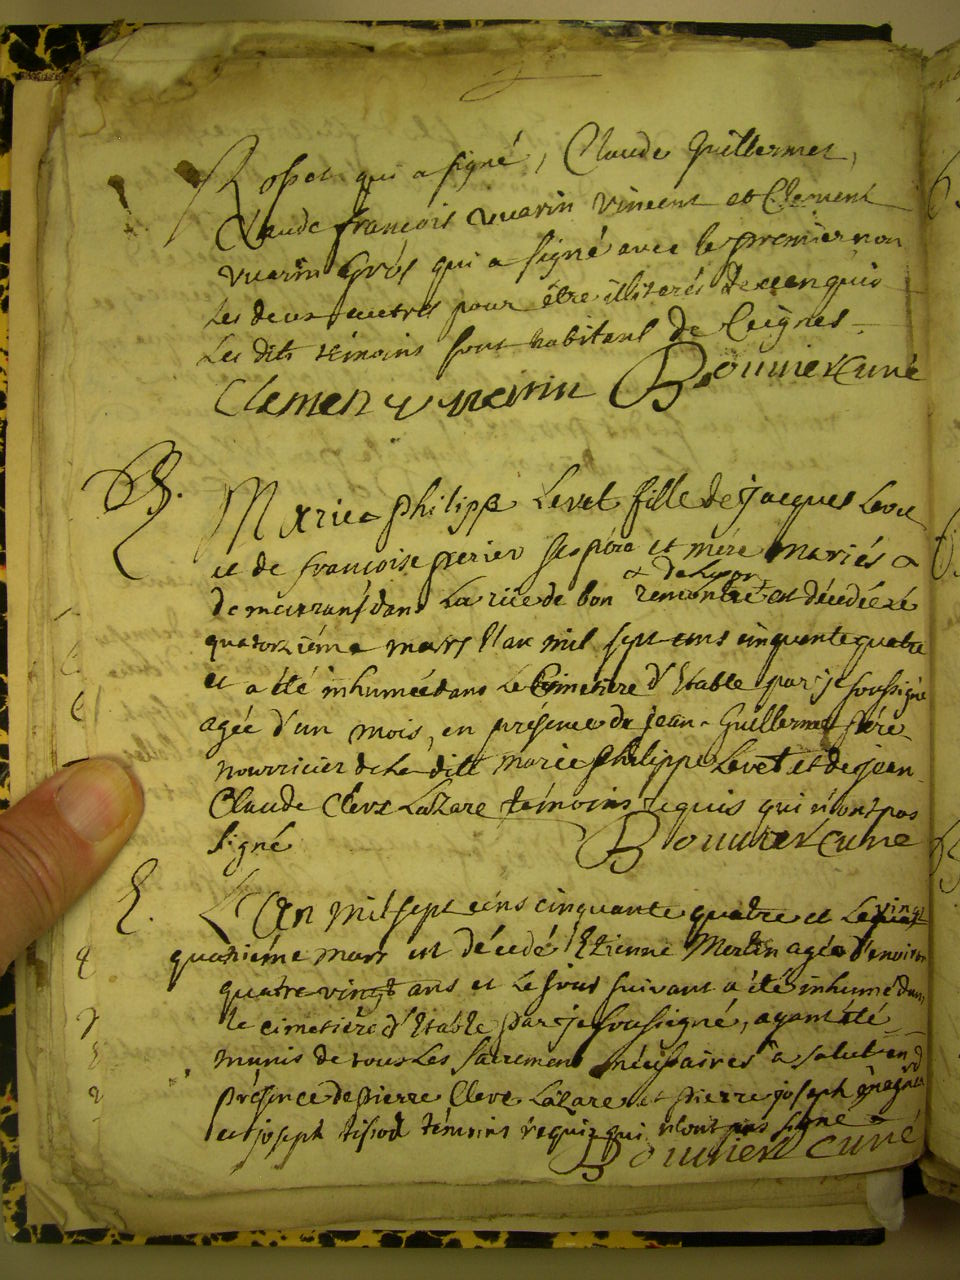 Rosset qui a signé, Claude Guillermet,
Claude françois vuarin vincent et Clement
vuarin Gros qui a signé avec le premier non
les deux autres pour être illiterés de ce enquis
Les dits témoins sont habitans de Ceignes.
Clemen vuarin Bouvier Curé
B.
Marie philippe Levet fille de jacques Levet
et de françoise perier ses père et mére mariés &
demeurans dans La rüe de bon rencontre est décédée le
& de Lyon
quatorziéme mars l'an mil sept cens cinquante quatre
et a été inhumée dans Le Cimetiére d'Etable par je soussigné
agée d'un mois, en présence de jean Guillermet pére
nourricier de La dite marie philippe Levet et de jean
Claude Clerc Lazare témoins requis qui n'ont pas
signé Bouvier Curé
E.
L'An mil sept cens cinquante quatre et Le vingt
quatriéme mars est décédé Etienne Merlin agée d'environ
quatre vingt ans et Le jour suivant a été inhumé dans
le cimetiére d'Etable par je soussigné, ayant été
munis de tous Les sacremens nécessaires a salut en
présence de pierre Clerc Lazare et pierre joseph
et joseph tissod témoins requis qui n'ont pas signé
Bouvier curé